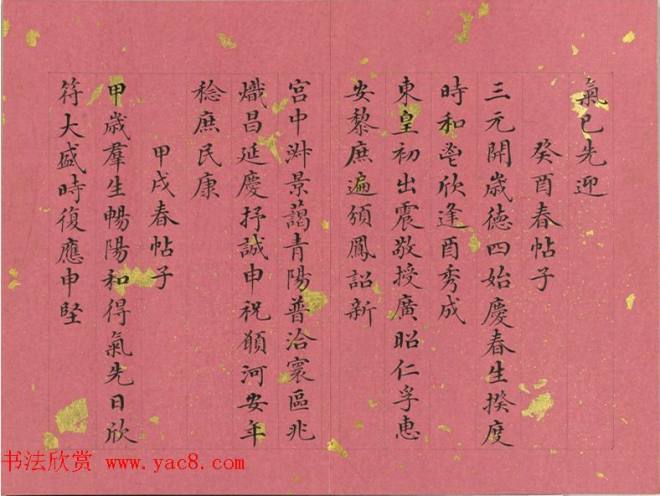 氣已先迎
癸酉春帖子
三元開歲德四始慶春生揆度
時和㐫欣逢酉秀成
東皇初出震敬授廣昭仁孚惠
安黎庶遍頒鳳詔新
宮中淑景藹青陽普洽寰區兆
熾昌延慶抒誠申祝願河安年
稔庶民康
甲戌春帖子
甲歲羣生暢陽和得氣先日欣
符大盛時復應申堅
书法欣赏 www.yac8.com